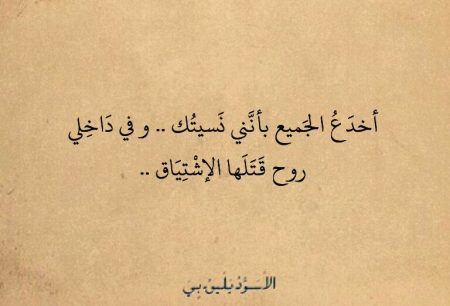 أخدَعُ الجَميع بأنَّني نَسيتُك .. و في دَاخِلي
روح قَتَلَها الإشْتِيَاق ..
الأسوَدُ يَليقُ بِي